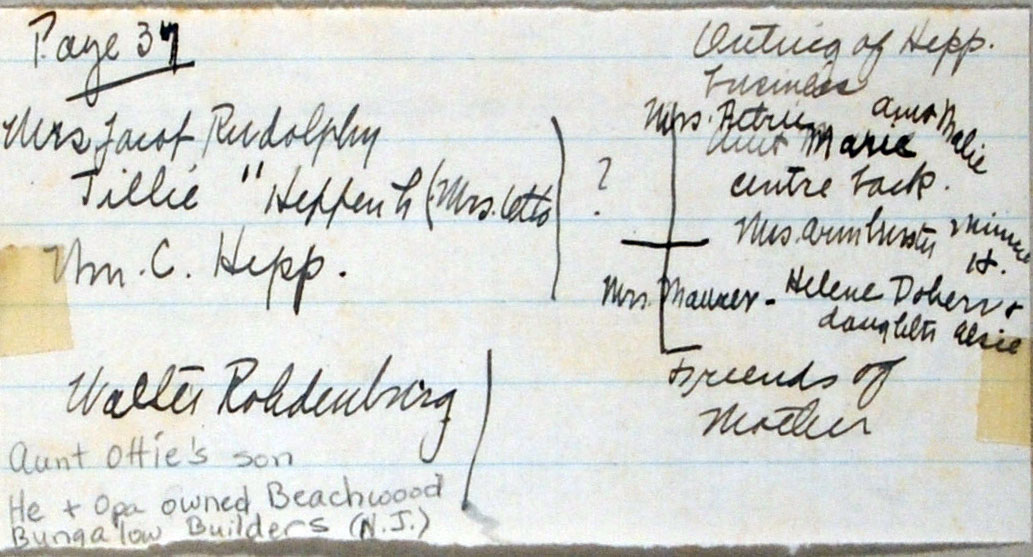 Page 37
Mrs Jacob Rudolphy
Tillie " Heppen
(Mrs. Otto
Wm. C. Hepp.
?
Walter Rohdenburg
Aunt Ottie's son
He + Opa owned Beachwood
Bungalow Builders (N.J.)
Outing of Hepp.
business
Mrs. Petrie
Aunt Malie
Aunt Marie
centre back.
Mrs. Armbruster
Minnie
H.
Mrs. Maurer - Helene Dobers +
daughter Elsie
Friends of
Mother